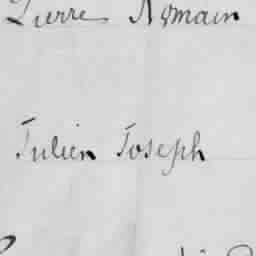 Pierre Romain
Julien Joseph